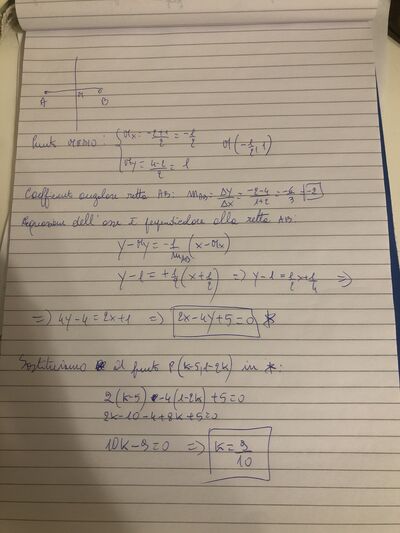 A M B
Punto MEDIO: { Mx = -2+1/2 = -1/2 M(-1/2, 1)
My = 4-2/2 = 1
Coefficiente angolare retta AB: mAB = Δy/Δx = -2-4/1+2 = -6/3 = -2
Equazione dell'asse è perpendicolare alla retta AB:
y-My = -1/mAB (x-Mx)
y-1 = +1/2 (x+1/2) => y-1 = 1/2 x+1/4 =>
=> 4y-4 = 2x+1 => 2x-4y+5=0 *
Sostituiamo il punto P(k-5, 1-2k) in *:
2(k-5) -4(1-2k)+5=0
2k-10-4+8k+5=0
10k-9=0 => k=9/10